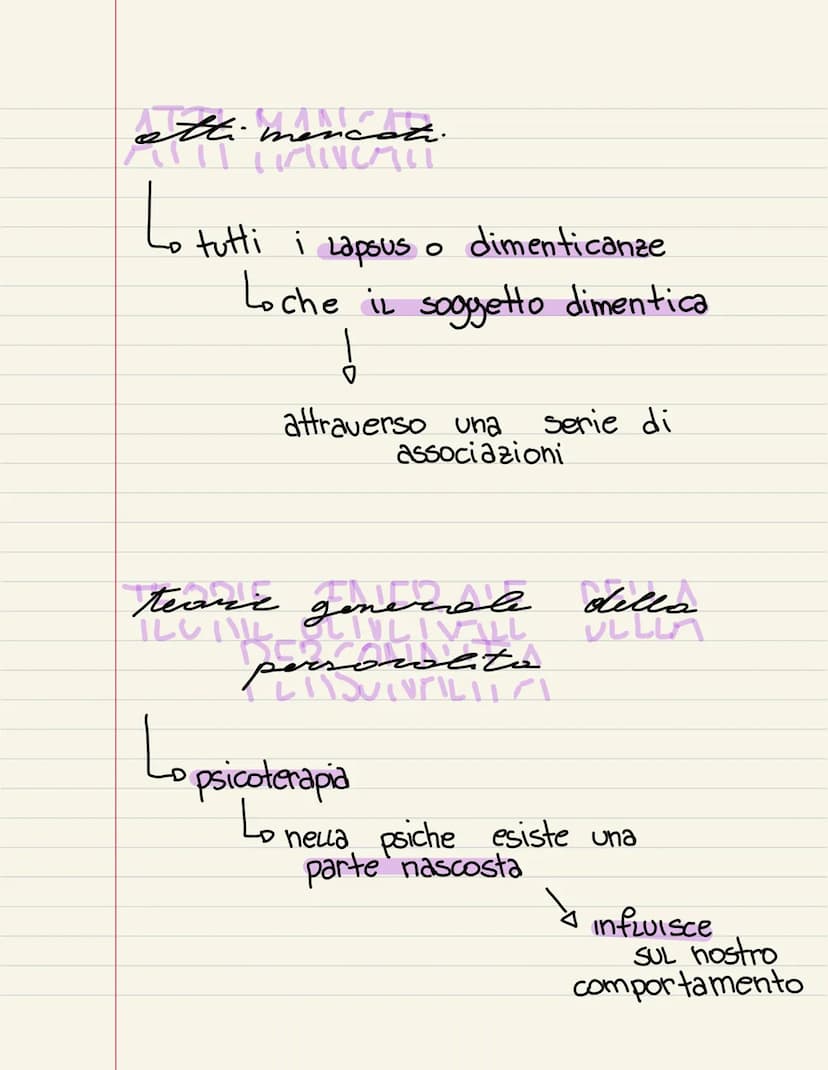 atti mancati
tutti i lapsus o dimenticanze
che il soggetto dimentica
attraverso una serie di
associazioni
teorie generale della
personalità
psicoterapia
nella psiche esiste una
parte nascosta
influisce
sul nostro
comportamento